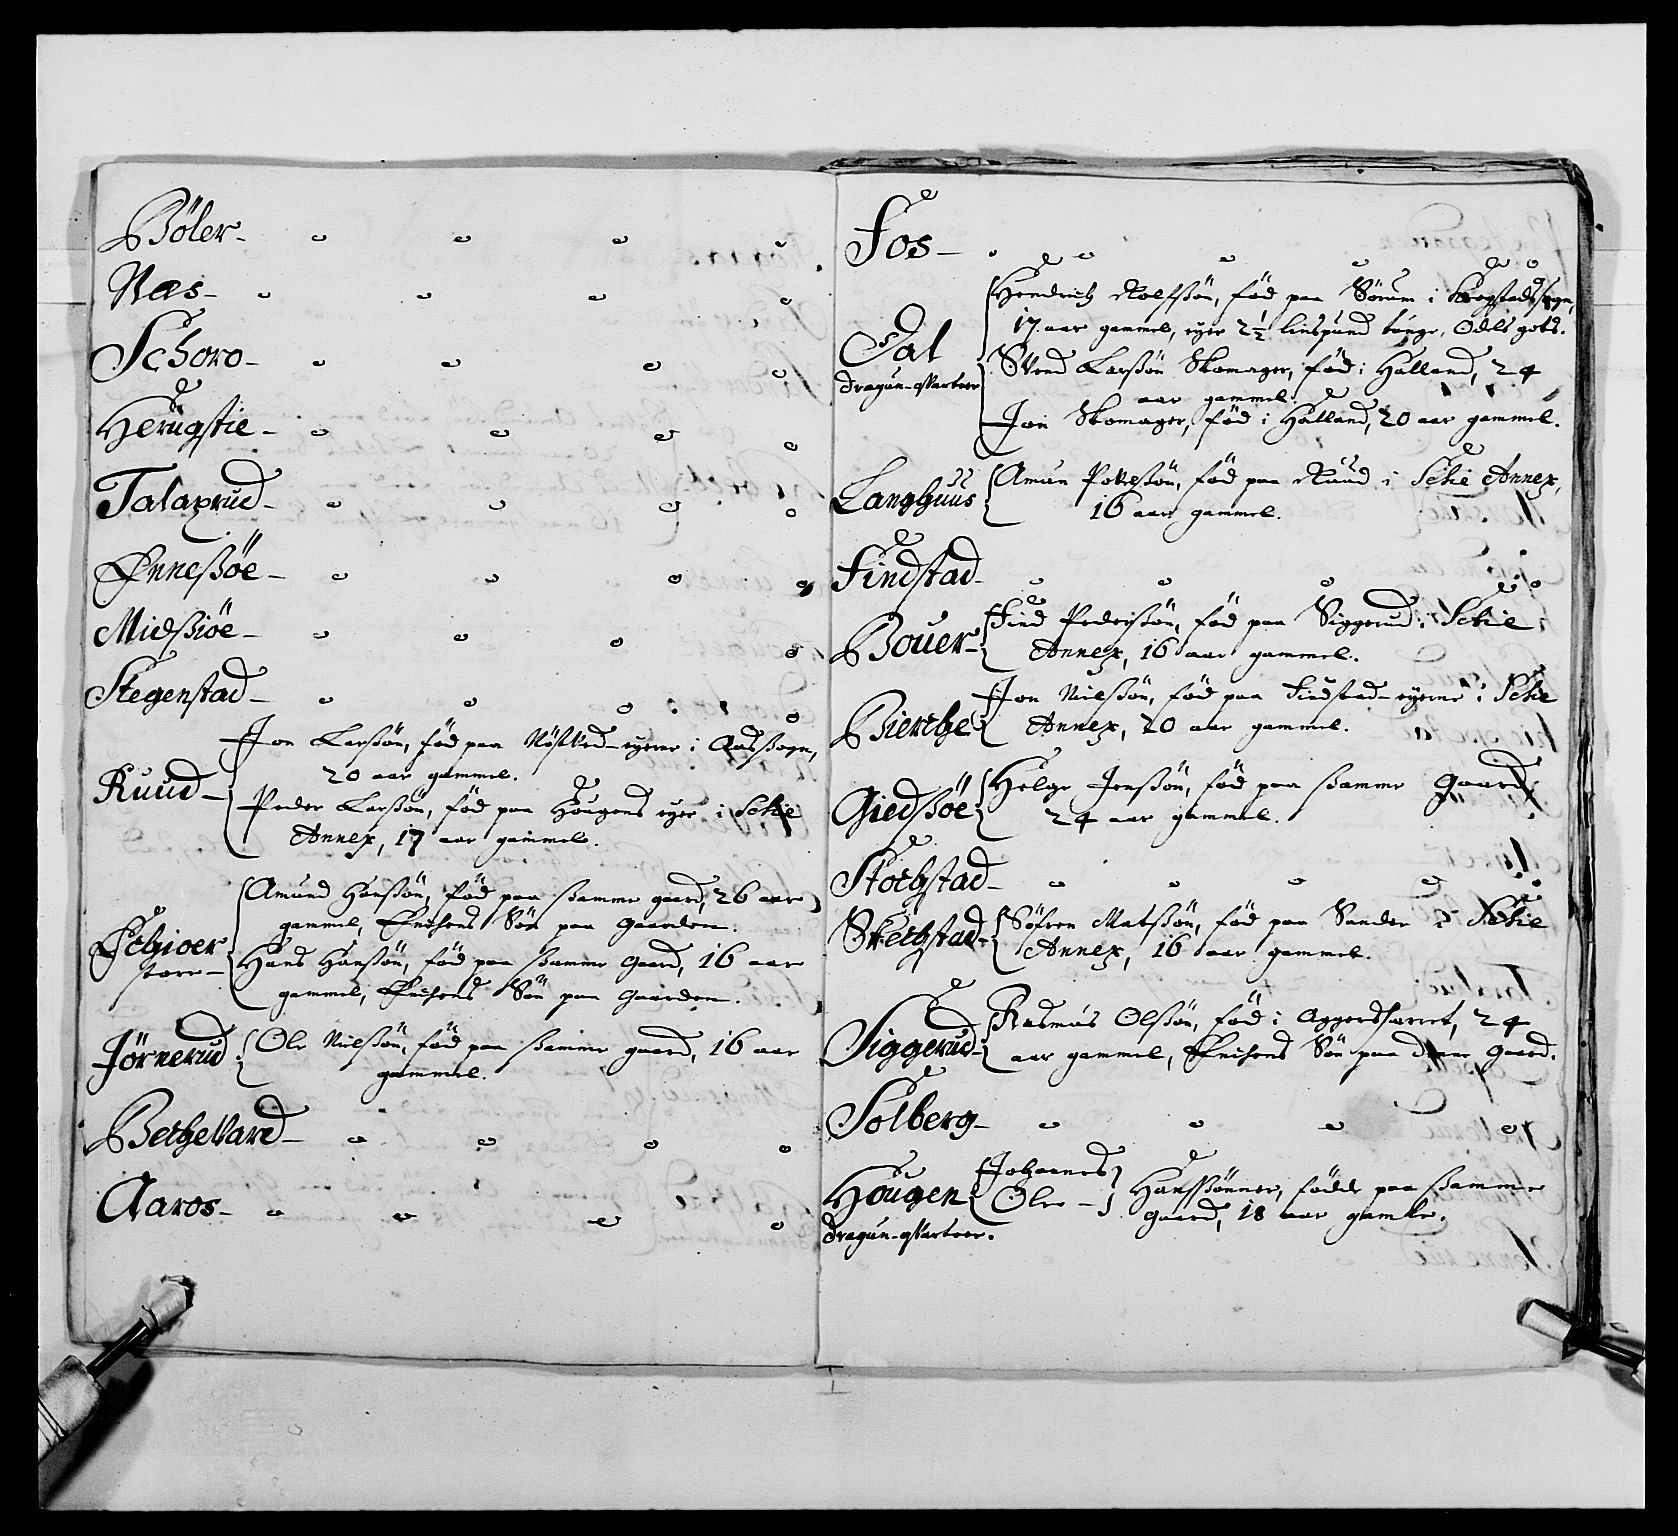 Böler –
Næs –
Schoro –
Herugstie –
Talaxrud –
Ennesßöe –
Midßiöe –
Stegenstad –
Ruud –
Jon Larßön, föd paa Nöstved-eyerne i Aassogn,
20 aar gammel.
Peder Larßön, föd paa Hougens eyer i Schie
Annex, 17 aar gammel.
Echioer
store –
Amund Hanßön, föd paa ßamme gaard, 26 aar
gammel, Enchens Sön paa Gaarden.
Hans Hanßön, föd paa ßamme Gaard, 16 aar
gammel, Enchens Sön paa Gaarden.
Jörnerud
Ole Nielßön, föd paa ßamme gaard, 16 aar
gammel.
Bechevard –
Aaros –
Fos –
Dal
Dragun-qvarteer
Hendrich Rolfßön, föd paa Sörum i Krogstadsogn,
17 aar gammel, eyer 2½ Lispund tunge, Odels gods.
Svend Larßön Skomager, föd i Halland, 24
aar gammel.
Jon Skomager, föd i Halland, 20 aar gammel.
Langhuus
Amun Povelßön, föd paa Ruud i Schie Annex,
16 aar gammel.
Findstad –
Bouer –
Find Pederßön, föd paa Siggerud i Schie
Annex, 16 aar gammel.
Bierche
Jon Nielßön, föd paa Findstad-eyerne i Schie
Annex, 20 aar gammel.
Giedßöe
Helge Jenßön, föd paa ßamme Gaard,
24 aar gammel.
Stochstad –
Skechstad –
Söfren Matßön, föd paa Sander i Schie
Annex, 16 aar gammel.
Siggerud –
Rasmus Olßön, föd i Aggershærret, 24
aar gammel, Enchens Sön paa denne Gaard.
Solberg –
Hougen
Dragun-qvarteer.
Johannes
Ole –
Hansßönner, födde paa ßamme
Gaard, 18 aar gamle.